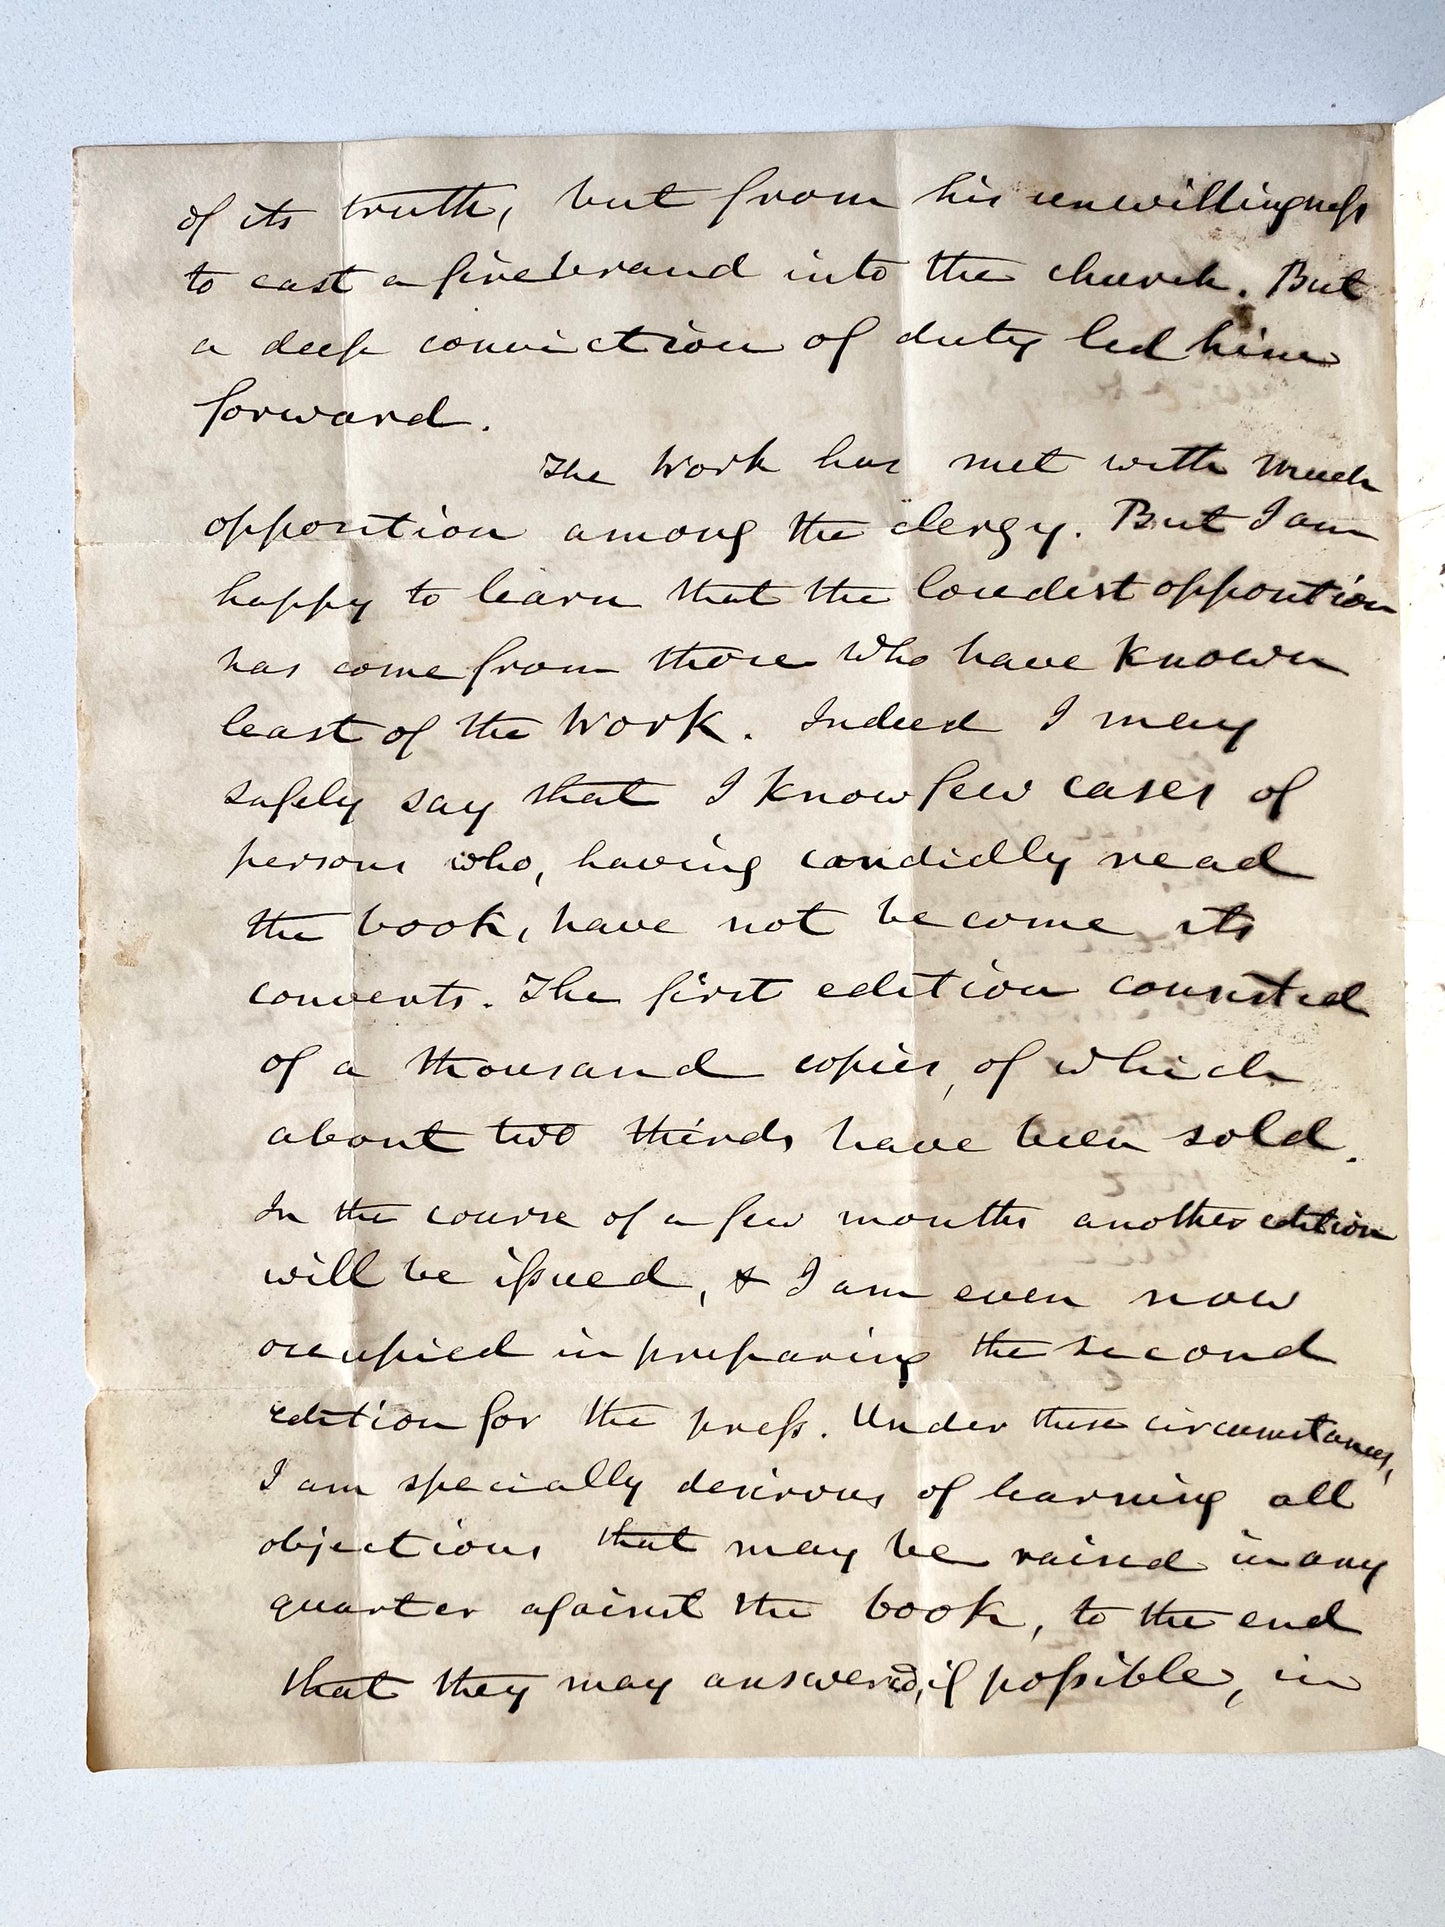 of its truth, but from his unwillingness
to cast a firebrand into the church. But
a deep conviction of duty led him
forward.
The work has met with much
opposition among the clergy. But I am
happy to learn that the loudest opposition
has come from those who have known
least of the work. Indeed I may
safely say that I know few cases of
persons who, having candidly read
the book, have not become its
converts. The first edition consisted
of a thousand copies, of which
about two thirds have been sold.
In the course of a few months another edition
will be issued, & I am even now
occupied in preparing the second
edition for the press. Under these circumstances,
I am specially desirous of learning all
objections that may be raised in any
quarter against the book, to the end
that they may answered, if possible, in